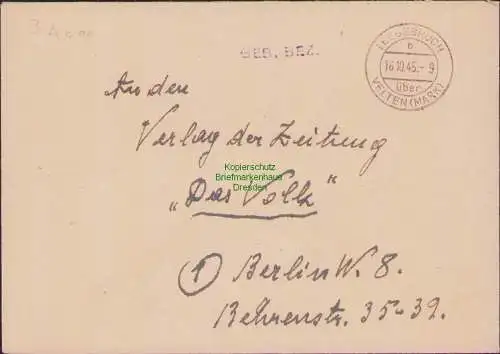 GEB. BEZ.
LEEGEBRUCH
b
16.10.45.- 9
über
VELTEN (MARK)
An den
Verlag der Zeitung
Kopierschutz
Briefmarkenhaus
Dresden
„Das Volk"
(1) Berlin W. 8.
Behrenstr. 35-39.